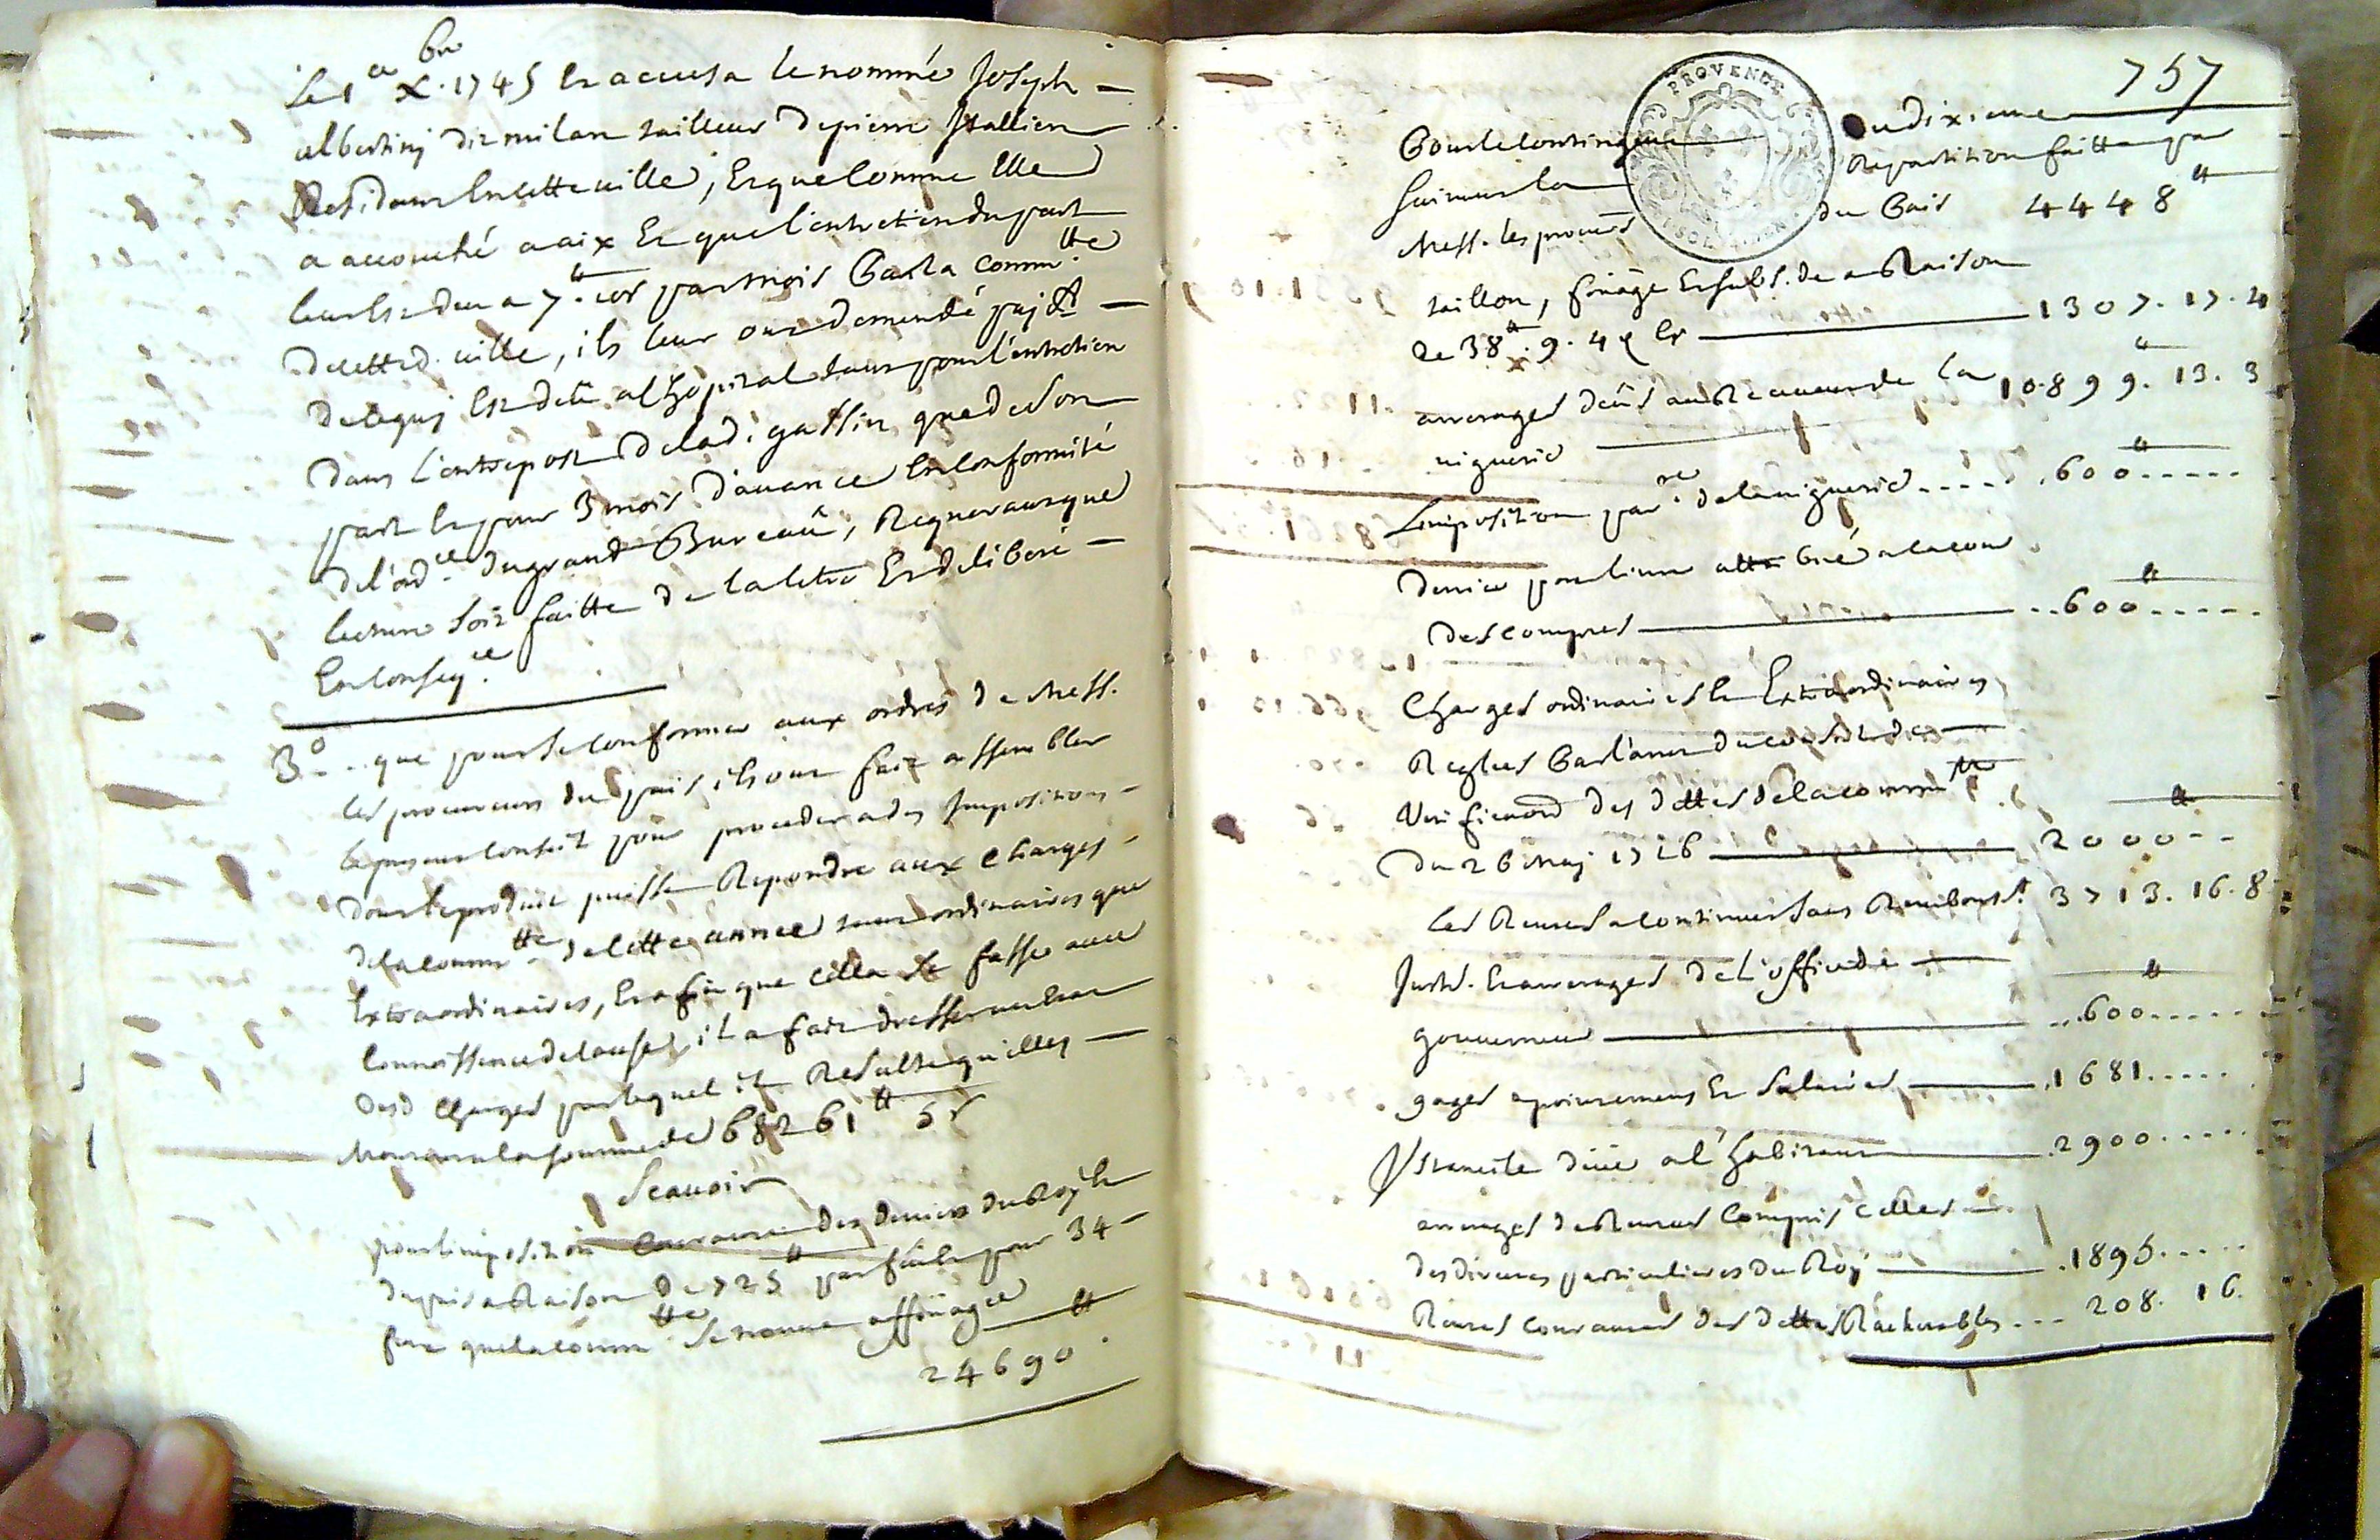 Le 1er Xbre 1745 Et accusa le nommé Joseph
albertiny dit milan tailleur de pierre Itallien
Residant En cette ville, Et que comme Elle
a accouché a aix Et que l'entretien du part
leur Est deu a 7lt. 10s par mois Par la commtté
de cette d. ville, ils leur ont demendé pajemt
de ce quj Est deû al'hôpital tant pour l'entretien
Dans l'entrepost De lad. gassin que de son
part Et pour 3 mois d'auance En conformité
de l'ordce du grand Bureaû, Requerant que
lecture soit faitte de la letre Et deliberé
En conseqce.
3o .. que pour se conformer aux ordres de Mess.
les procureurs du païs ils ont fait assembler
le present conseil pour proceder a des Impositions
Dont le produit puisse Repondre aux charges
de la commtté de cette année tant ordinaires que
Extraordinaires, Et afin que cella se fasse avec
connoissence de cause, il a fait dresser un Etat
desd charges par lequel il Resulte qu'elles
Montent la somme de 68261lt 5s
Scauoir
pour l'imposition courante des deniers du Roy Et
du païs a Raison de 725lt par feu Et pour 34
feux que la commtté se trouve affoüagée
24690lt
757
Pour le contingent du dixieme
suivant la Repartition faitte par
Mess. les procurs du Païs 4448lt
taillon, foüage Et subs. de a Raison
de 38lt. 9. 4 Et 1307. 17. 4
arrerages deûs au Receveur de la
viguerie 10899. 13. 3
Imposition parre de la viguerie .... 600 .....
Denier pour livre attribué a la cour
des comptes ..600.....
Charges ordinaires Et Extraordinaires
Reglées Par l'arret du conseil de
Verificaon des dettes de la commtté
du 26 Maj 1726 2000 --
les Rentes a continuer sans Remboursnt 3713. 16. 8
Intts. Et arrerages de L'office de
gouverneur ...600.....
gages apointemens Et Salaires .1681.....
Vstancile düe a l'habitant .2900.....
arrerages de Rentes compris celles
des diverses particulieres du Roy .1895.....
Rentes courantes des dettes Rachetables ... 208. 16.
PROVENCE